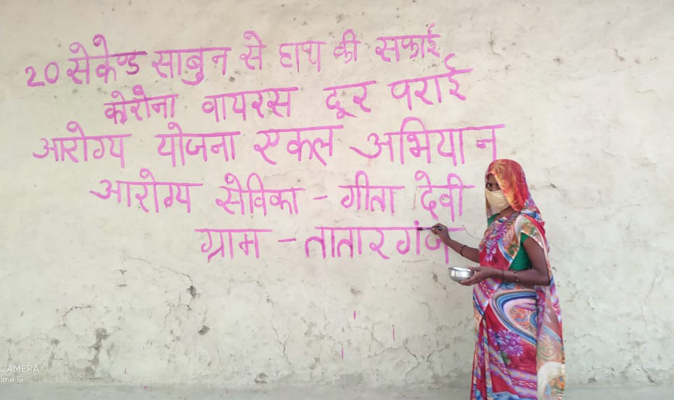 20 सेकेण्ड साबुन से हाथ की सफाई
कोरोना वायरस दूर पराई
आरोग्य योजना एकल अभियान
आरोग्य सेविका - गीता देवी
ग्राम - तातारगंज
CAMERA